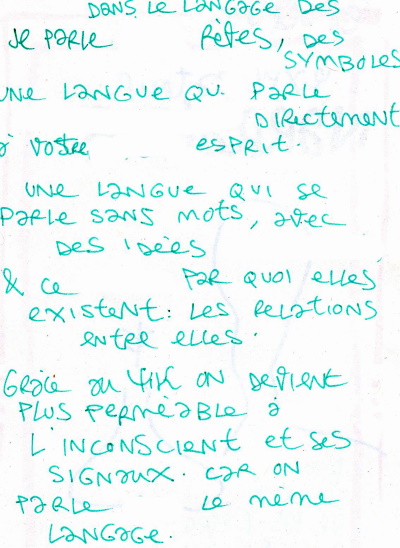 DANS LE LANGAGE DES
Je PARLE RÊTES, DES
SYMBOLES
UNE LANGUE QUi PARLE
DIRECTEMENT
à VOTRE ESPRIT.
UNE LANGUE QUI SE
PARLE SANS MOTS, AVEC
DES IDÉES
& CE PAR QUOI ELLES
EXISTENT: LES RELATIONS
ENTRE ELLES.
GRÂCE AU ON DEVIENT
PLUS PERMÉABLE À
L'INCONSCIENT ET SES
SIGNAUX. CAR ON
PARLE LE MÊME
LANGAGE.